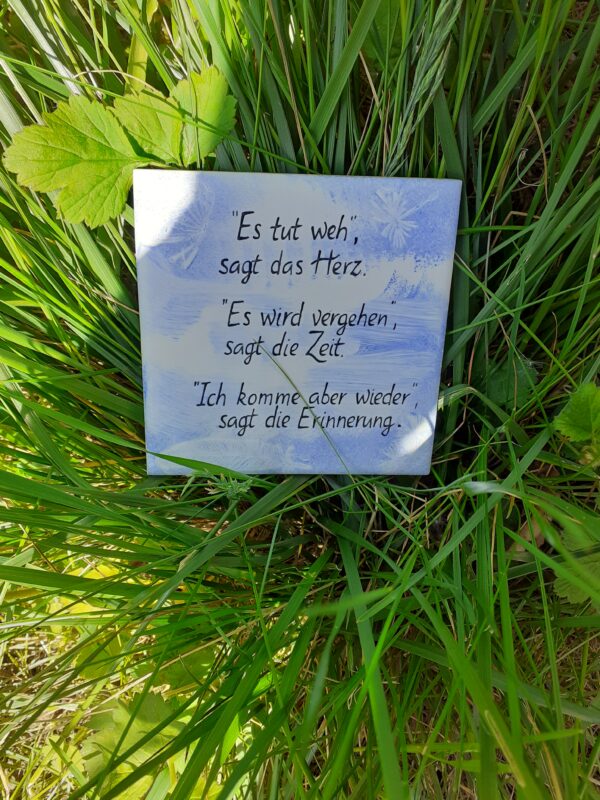 "Es tut weh",
sagt das Herz.
"Es wird vergehen",
sagt die Zeit.
"Ich komme aber wieder",
sagt die Erinnerung.